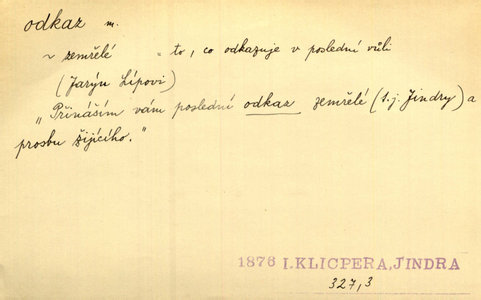 odkaz m.
~ zemřelé = to, co odkazuje v poslední vůli
(Jarýn Lípovi)
„Přináším vám poslední odkaz zemřelé (t.j. Jindry) a
prosbu žijícího."
1876 I. KLICPERA, JINDRA
327,3